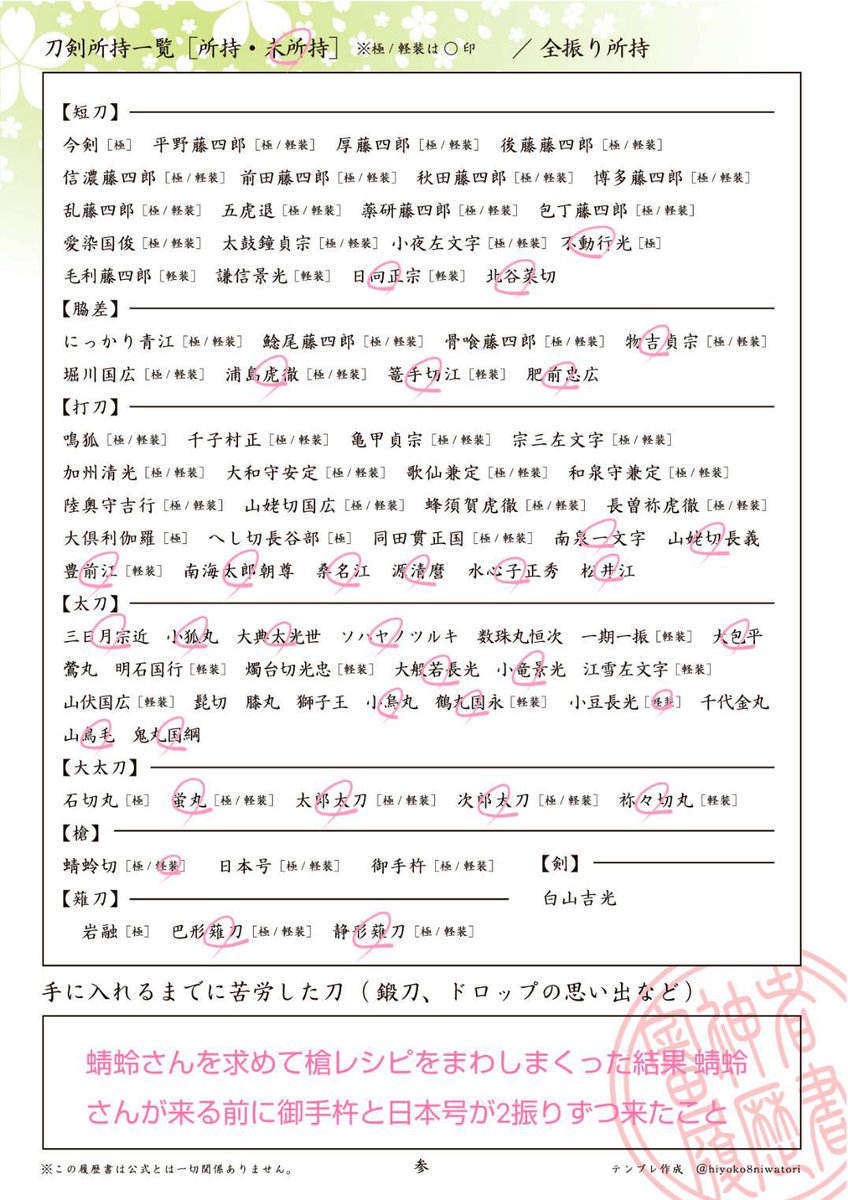 刀剣所持一覧［所持・未所持］ ※極/軽装は○印 ／全振り所持
【短刀】
今剣［極］ 平野藤四郎［極/軽装］ 厚藤四郎［極/軽装］ 後藤藤四郎［極/軽装］
信濃藤四郎［極/軽装］ 前田藤四郎［極/軽装］ 秋田藤四郎［極/軽装］ 博多藤四郎［極/軽装］
乱藤四郎［極/軽装］ 五虎退［極/軽装］ 薬研藤四郎［極/軽装］ 包丁藤四郎［極/軽装］
愛染国俊［極/軽装］ 太鼓鐘貞宗［極/軽装］ 小夜左文字［極/軽装］ 不動行光［極］
毛利藤四郎［軽装］ 謙信景光［軽装］ 日向正宗［軽装］ 北谷菜切
【脇差】
にっかり青江［極/軽装］ 鯰尾藤四郎［極/軽装］ 骨喰藤四郎［極/軽装］ 物吉貞宗［極/軽装］
堀川国広［極/軽装］ 浦島虎徹［極/軽装］ 篭手切江［軽装］ 肥前忠広
【打刀】
鳴狐［極/軽装］ 千子村正［極/軽装］ 亀甲貞宗［極/軽装］ 宗三左文字［極/軽装］
加州清光［極/軽装］ 大和守安定［極/軽装］ 歌仙兼定［極/軽装］ 和泉守兼定［極/軽装］
陸奥守吉行［極/軽装］ 山姥切国広［極/軽装］ 蜂須賀虎徹［極/軽装］ 長曽祢虎徹［極/軽装］
大倶利伽羅［極］ へし切長谷部［極］ 同田貫正国［極/軽装］ 南泉一文字 山姥切長義
豊前江［軽装］ 南海太郎朝尊 桑名江 源清麿 水心子正秀 松井江
【太刀】
三日月宗近 小狐丸 大典太光世 ソハヤノツルキ 数珠丸恒次 一期一振［軽装］ 大包平
鶯丸 明石国行［軽装］ 燭台切光忠［軽装］ 大般若長光 小竜景光 江雪左文字［軽装］
山伏国広［軽装］ 髭切 膝丸 獅子王 小烏丸 鶴丸国永［軽装］ 小豆長光［軽装］ 千代金丸
山鳥毛 鬼丸国綱
【大太刀】
石切丸［極］ 蛍丸［極/軽装］ 太郎太刀［極/軽装］ 次郎太刀［極/軽装］ 祢々切丸［軽装］
【槍】
蜻蛉切［極/軽装］ 日本号［極/軽装］ 御手杵［極/軽装］
【剣】
白山吉光
【薙刀】
岩融［極］ 巴形薙刀［極/軽装］ 静形薙刀［極/軽装］
手に入れるまでに苦労した刀（鍛刀、ドロップの思い出など）
蜻蛉さんを求めて槍レシピをまわしまくった結果 蜻蛉
さんが来る前に御手杵と日本号が2振りずつ来たこと
審神者
履歴書
※この履歴書は公式とは一切関係ありません。
参
テンプレ作成 @hiyoko8niwatori